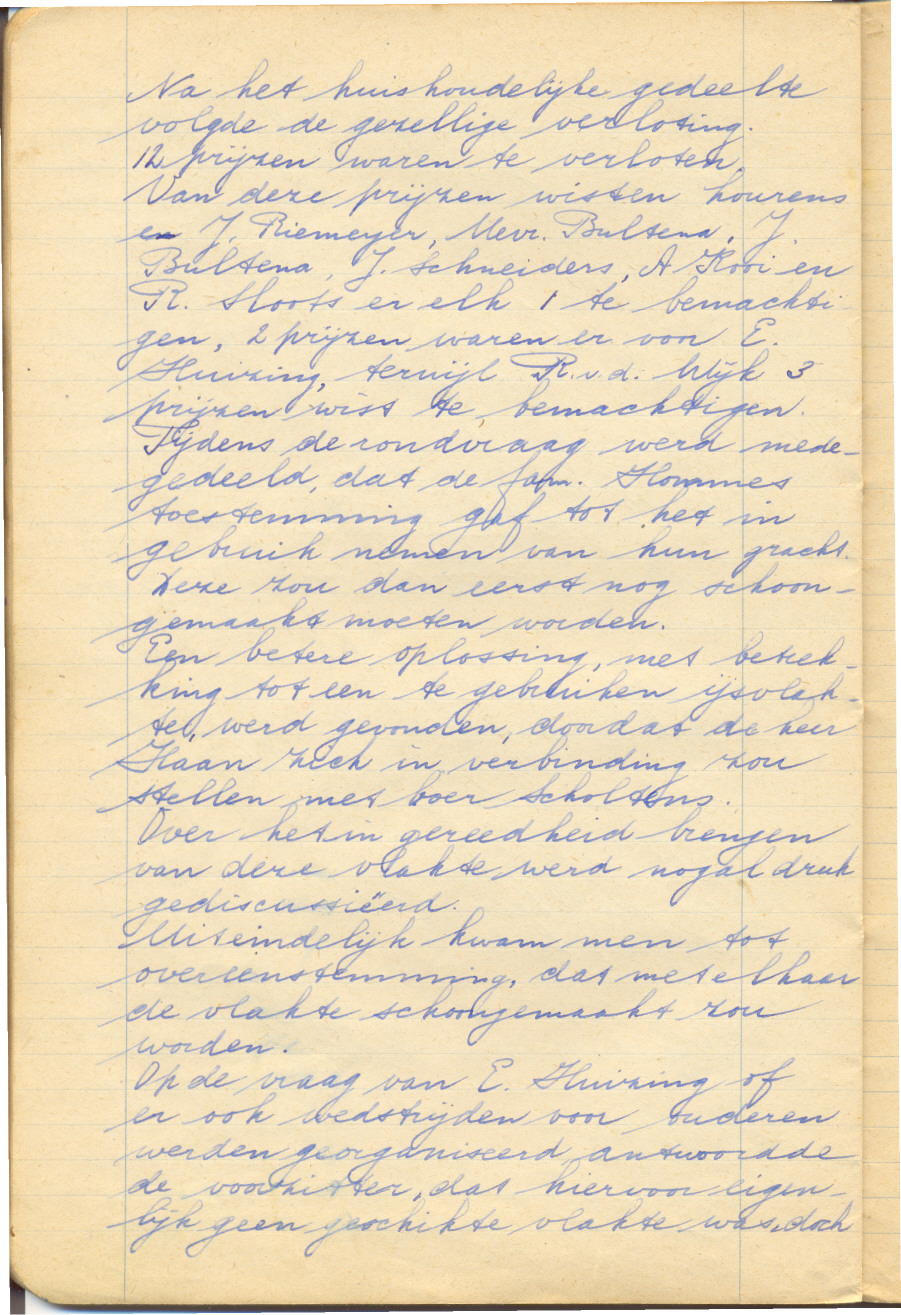 Na het huishoudelijke gedeelte
volgde de gezellige verloting.
12 prijzen waren te verloten.
Van deze prijzen wisten Lourens
en J. Riemeyer, Mevr. Bultena, J.
Bultena, J. Schneiders, A Kooi en
R. Sloots er elk 1 te bemachti
gen, 2 prijzen waren er voor E.
Huizing, terwijl R. v. d. Wijk 3
prijzen wist te bemachtigen.
Tijdens de rondvraag werd mede-
gedeeld, dat de fam. Hommes
toestemming gaf tot het in
gebruik nemen van hun gracht.
Deze zou dan eerst nog schoon-
gemaakt moeten worden.
Een betere oplossing, met betrek-
king tot een te gebruiken ijsvlak-
te, werd gevonden, doordat de heer
Haan zich in verbinding zou
stellen met boer Scholtens.
Over het in gereedheid brengen
van deze vlakte werd nogal druk
gediscussiëerd.
Uiteindelijk kwam men tot
overeenstemming, dat met elkaar
de vlakte schoongemaakt zou
worden.
Op de vraag van E. Huizing of
er ook wedstrijden voor ouderen
werden georganiseerd antwoordde
de voorzitter, dat hiervoor eigen-
lijk geen geschikte vlakte was, doch